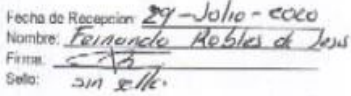 Fecha de Recepcion: 29-Julio-2020
Nombre: Fernando Robles de Jesus
Firma:
Sello: sin sello.